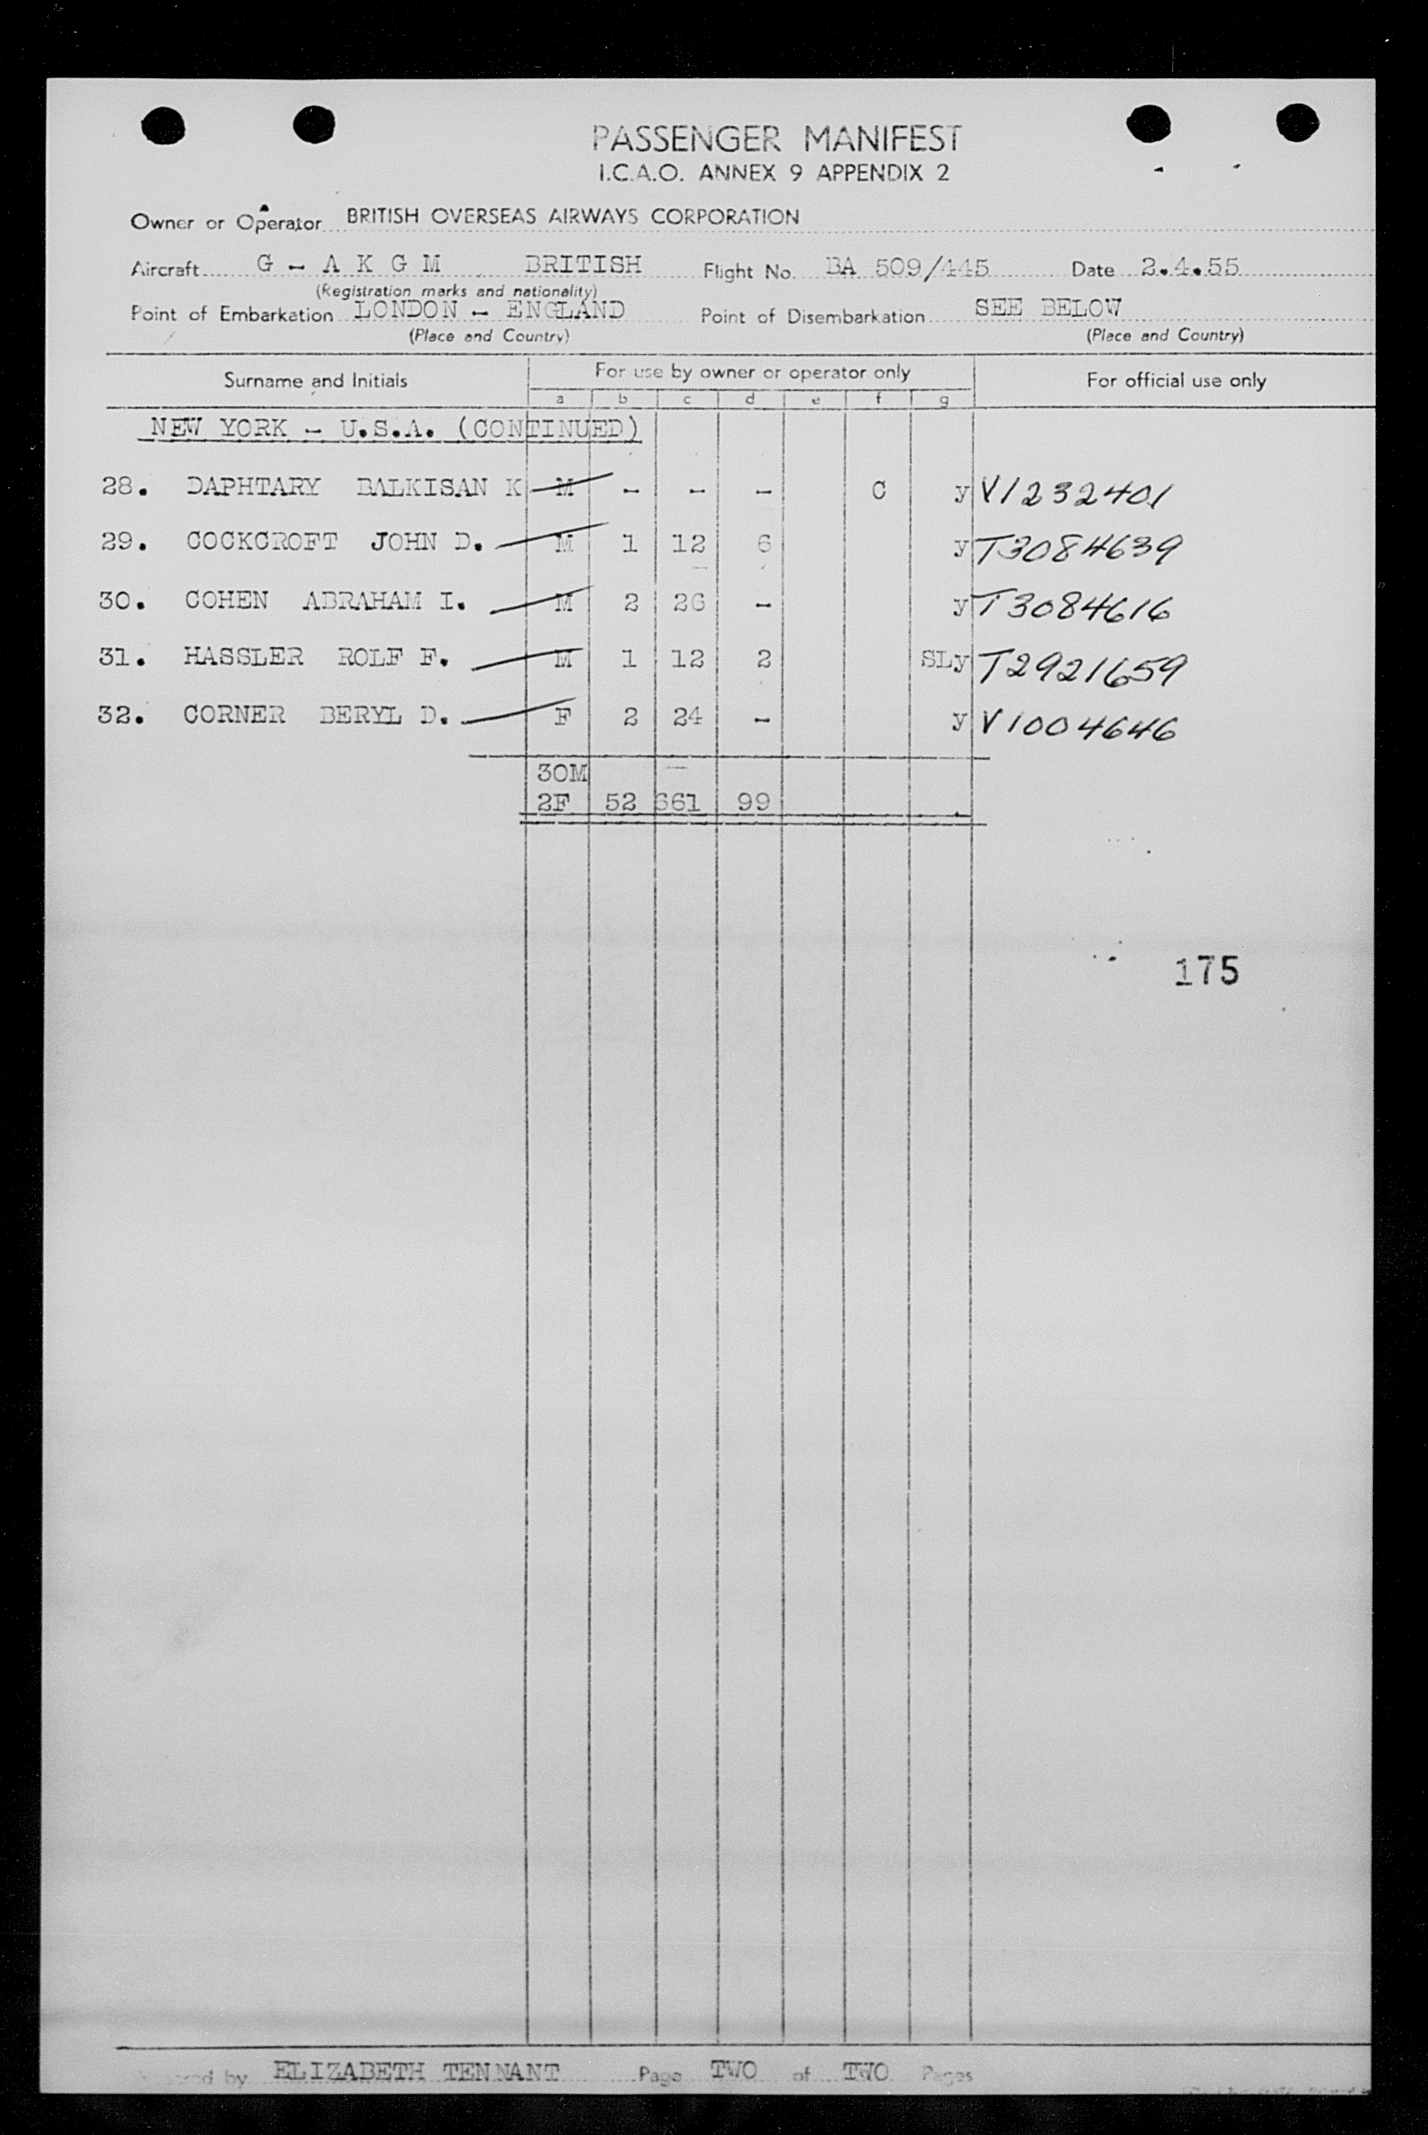 PASSENGER MANIFEST
I.C.A.O. ANNEX 9 APPENDIX 2
Owner or Operator BRITISH OVERSEAS AIRWAYS CORPORATION
Aircraft G - A K G M BRITISH Flight No. BA 509/445 Date 2.4.55
(Registration marks and nationality)
Point of Embarkation LONDON - ENGLAND Point of Disembarkation SEE BELOW
(Place and Country) (Place and Country)
Surname and Initials For use by owner or operator only For official use only
a b c d e f g
NEW YORK - U.S.A. (CONTINUED)
28. DAPHTARY BALKISAN K M - - - C y V1232401
29. COCKCROFT JOHN D. M 1 12 6 y T3084639
30. COHEN ABRAHAM I. M 2 26 - y T3084616
31. HASSLER ROLF F. M 1 12 2 SLy T2921659
32. CORNER BERYL D. F 2 24 - y V1004646
30M
2F 52 661 99
175
by ELIZABETH TENNANT Page TWO of TWO Pages